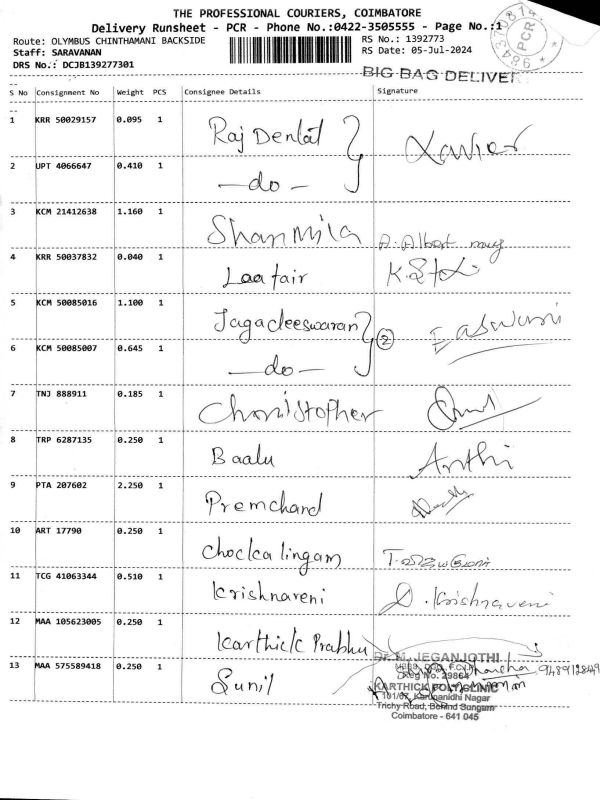 THE PROFESSIONAL COURIERS, COIMBATORE
Delivery Runsheet - PCR - Phone No.:0422-3505555 - Page No.:1
Route: OLYMBUS CHINTHAMANI BACKSIDE
RS No.: 1392773
Staff: SARAVANAN
RS Date: 05-Jul-2024
DRS No.: DCJB139277301
PCR
BIG BAG DELIVER
S No Consignment No Weight PCS Consignee Details Signature
1 KRR 50029157 0.095 1 Raj Dental Xavier
2 UPT 4066647 0.410 1 -do-
3 KCM 21412638 1.160 1 Shanmila A. Albert
4 KRR 50037832 0.040 1 Laafair
5 KCM 50085016 1.100 1 Jagadeeswaran 2 Easwari
6 KCM 50085007 0.645 1 -do-
7 TNJ 888911 0.185 1 Christopher
8 TRP 6287135 0.250 1 Baalu Arthi
9 PTA 207602 2.250 1 Premchand
10 ART 17790 0.250 1 Chockalingam
11 TCG 41063344 0.510 1 Krishnaveni D. Krishnaveni
12 MAA 105623005 0.250 1 Karthick Prabhu
13 MAA 575589418 0.250 1 Sunil
Dr. M. JEGANJOTHI
Reg No. 29864
KARTHICK POLYCLINIC
101/67, Karunanidhi Nagar
Trichy Road, Behind Sungam
Coimbatore - 641 045